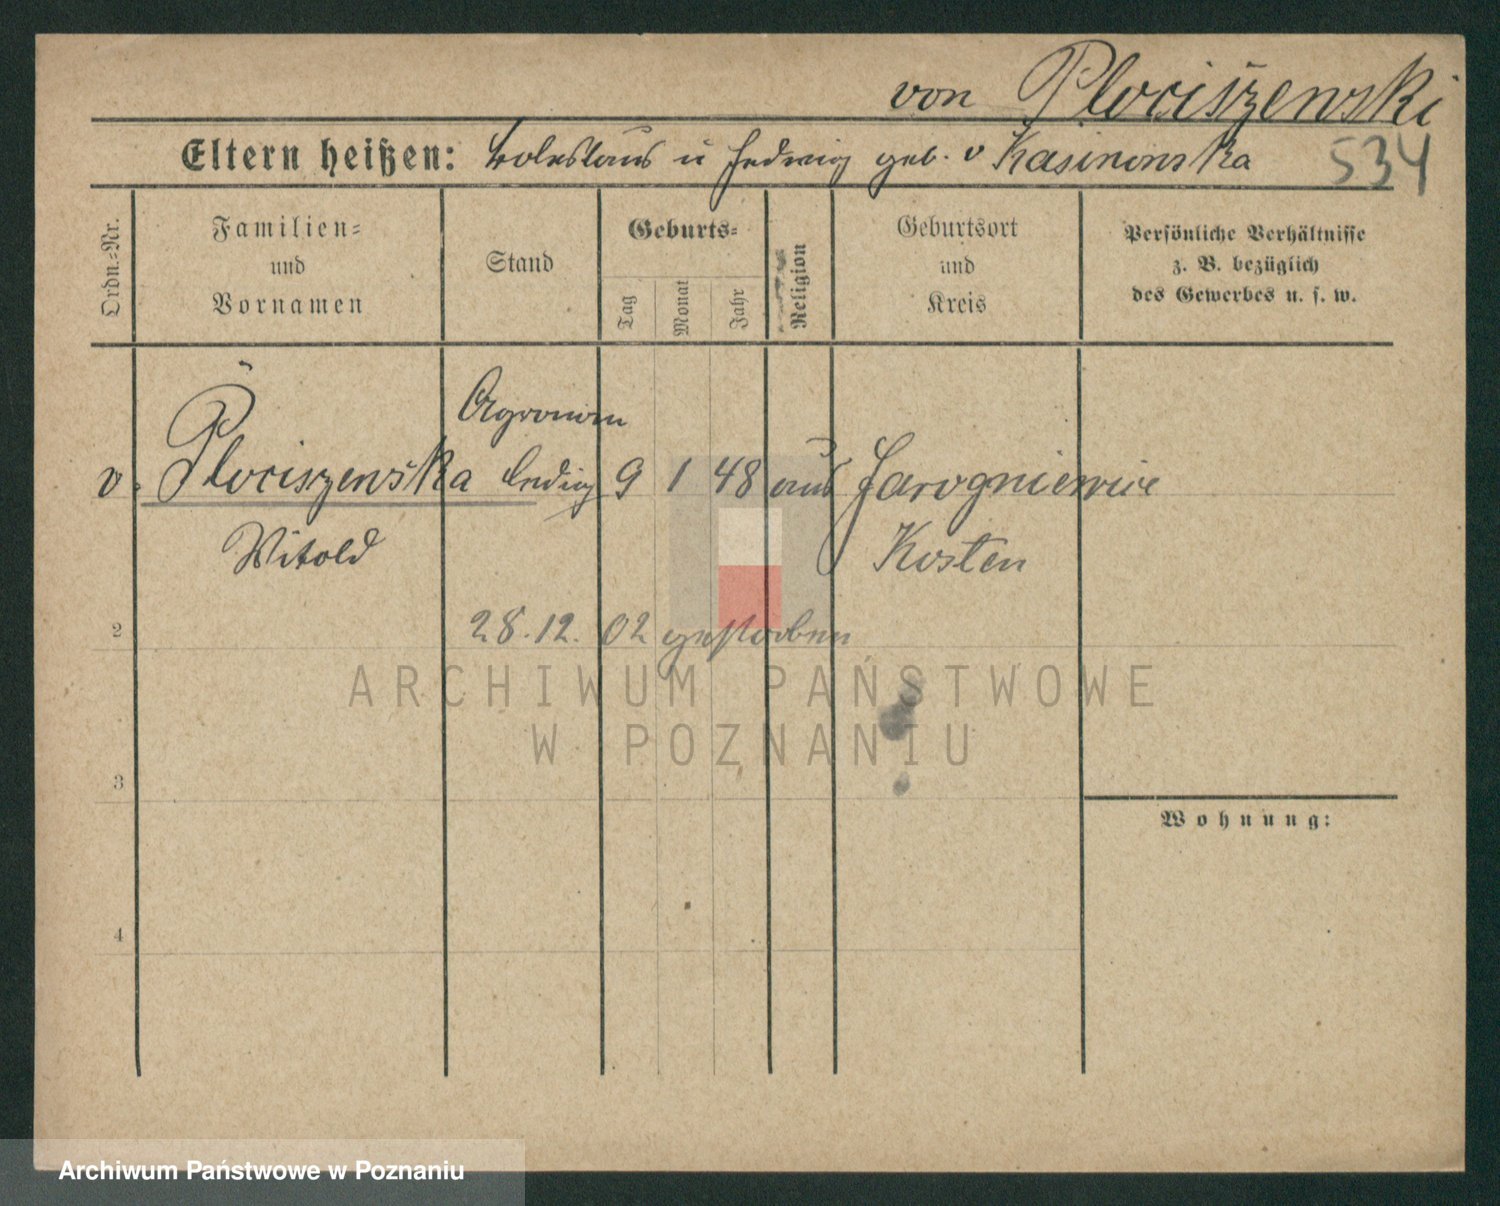 von Plociszewski
Eltern heißen: Boleslaus u Hedwig geb. v Kasinowska 534
Ordn.-Nr.
Familien-
und
Vornamen
Stand
Geburts-
Tag
Monat
Jahr
Religion
Geburtsort
und
Kreis
Persönliche Verhältnisse
z. B. bezüglich
des Gewerbes u. s. w.
Agronom
v. Plociszewska ledig 9 1 48 Jarogniewice
Witold Kosten
2 28.12.02 gestorben
ARCHIWUM PAŃSTWOWE
W POZNANIU
3
Wohnung:
4
Archiwum Państwowe w Poznaniu